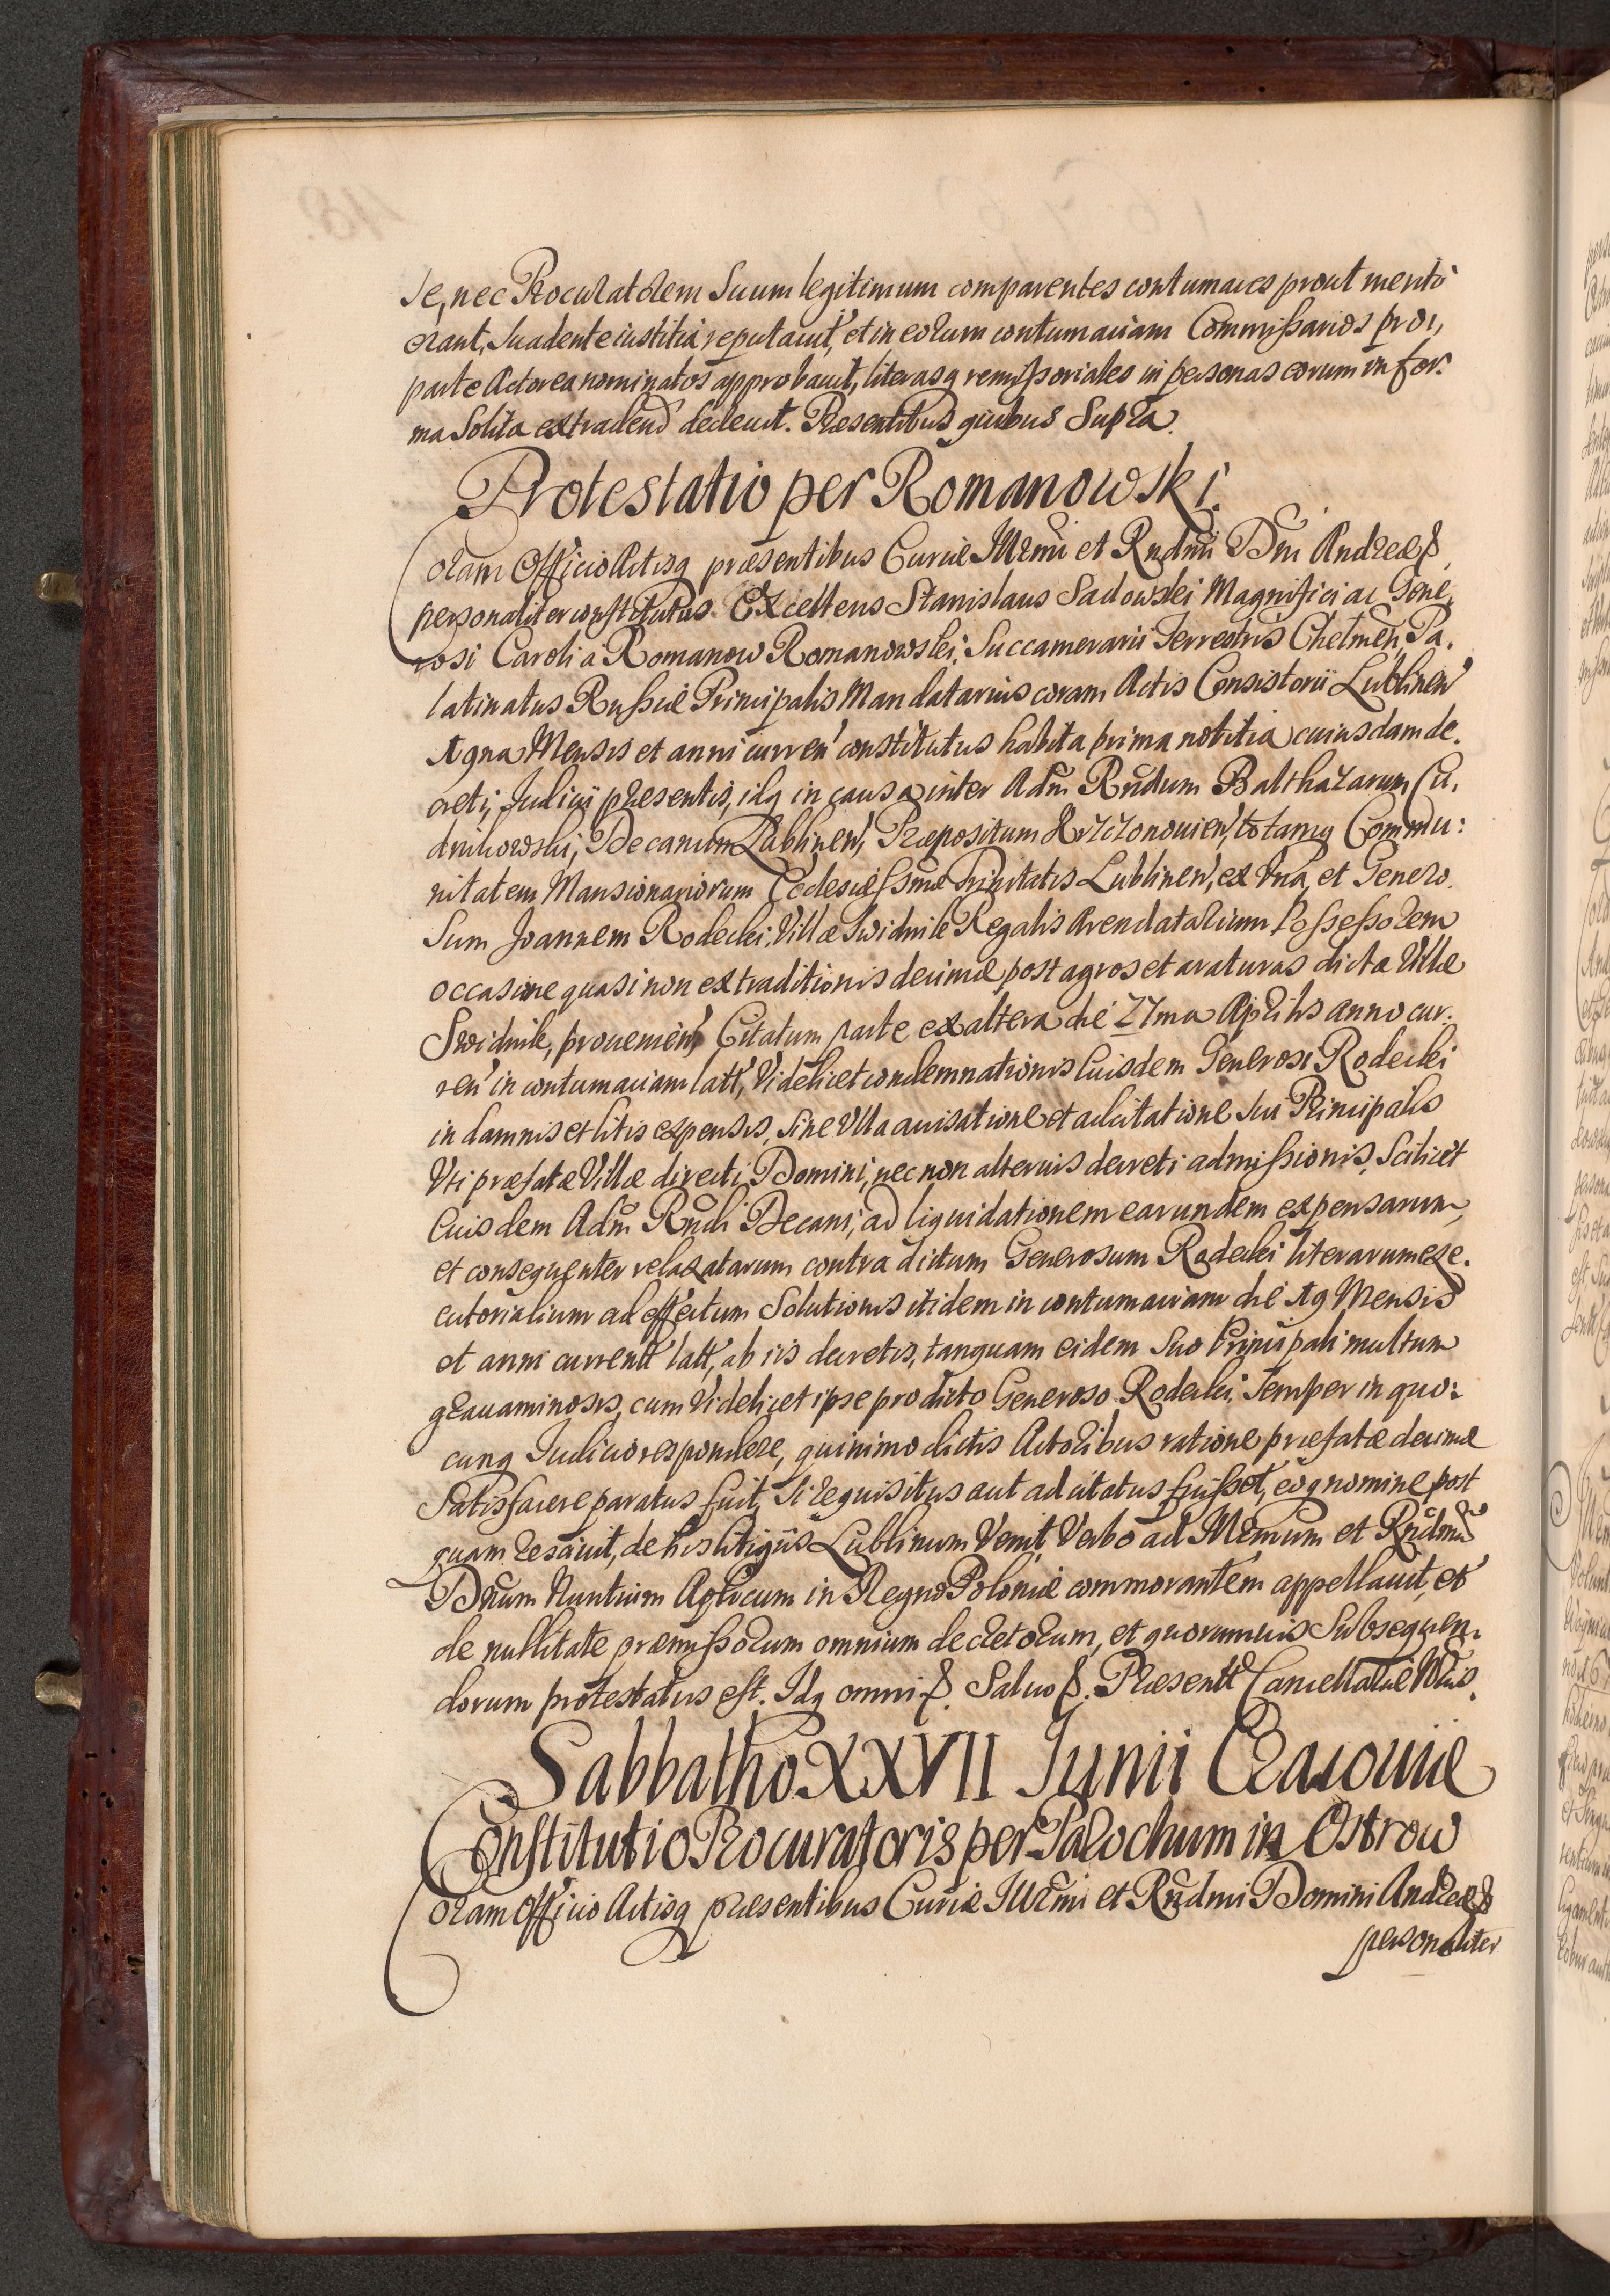 se, nec Procuratorem Suum legitimum comparentes contumaces prout merito
erant, Suadente iustitia reputauit, et in eorum contumaciam Commissarios pro
parte Actorea nominatos approbauit, literasq remissoriales in personas eorum in for:
ma Solita extradend decreuit. Præsentibus quibus Supra.
Protestatio per Romanowski.
Coram Officio Actisq præsentibus Curiæ Illrmi et Rndmi Dni Andreæ &
personaliter constitutus Excellens Stanislaus Sadowski Magnifici ac Gene,
rosi Caroli à Romanow Romanowski, Succamerarii Terrestris Chelmen, Pa.
latinatus Russiæ Principalis Mandatarius coram Actis Consistorii Lublinen
19na Mensis et anni curren constitutus habita prima notitia cuiusdam de.
creti, Judicii præsentis, idq in causa inter Adm Rndum Balthazarum Cu,
drikowski, Decanum Lublinen, Præpositum Krzczonouien, totamq Commu:
nitatem Mansionariorum Ecclesiæ Ssmæ Trinitatis Lublinen, ex Vna, et Genero.
Sum Joannem Rodecki, Villæ Swidnik Regalis Arendatarium Possessorem
occasione quasi non extraditionis decimæ post agros et araturas dictæ Villæ
Swidnik, prouenien Citatum parte ex altera die 27ma Aprilis anno cur.
ren in contumaciam latt, Videlicet condemnationis Euisdem Generosi Rodecki
in damnis et litis expensis, Sine Vlla auisatione et adcitatione Sui Principalis
Vti præfatæ Villæ directi Domini, nec non alterius decreti admissionis, Scilicet
Euisdem Adm Rndi Decani, ad liquidationem earundem expensarum,
et consequenter relaxatarum contra dictum Generosum Rodecki literarum exe.
cutorialium ad effectum Solutionis itidem in contumaciam die 19 Mensis
et anni currentt latt, ab iis decretis, tanquam eidem Suo Principali multum
grauaminosis, cum Videlicet ipse pro dicto Generoso Rodecki, Semper in quo:
cunq Judicio respondere, quinimo dictis Actoribus ratione præfatæ decimæ
Satisfacere paratus fuit, Si requisitus aut adcitatus fuisset, eo nomine post
quam resciuit, de his litigiis Lublinum Venit, Verbo ad Illrmum et Rndmu
Dnum Nuntium Aplicum in Regno Poloniæ commorantem appellauit, et
de nullitate præmissorum omnium decretorum, et quorumuis Subsequen.
dorum protestatus est. Idq omni & Saluo &. Præsentt Cancellariæ Notrijs.
Sabbatho XXVII Junii Cracouiæ
Constitutio Procuratoris per Parochum in Ostrow
Coram Officio Actisq præsentibus Curiæ Illrmi et Rndmi Domini Andreæ &
personaliter